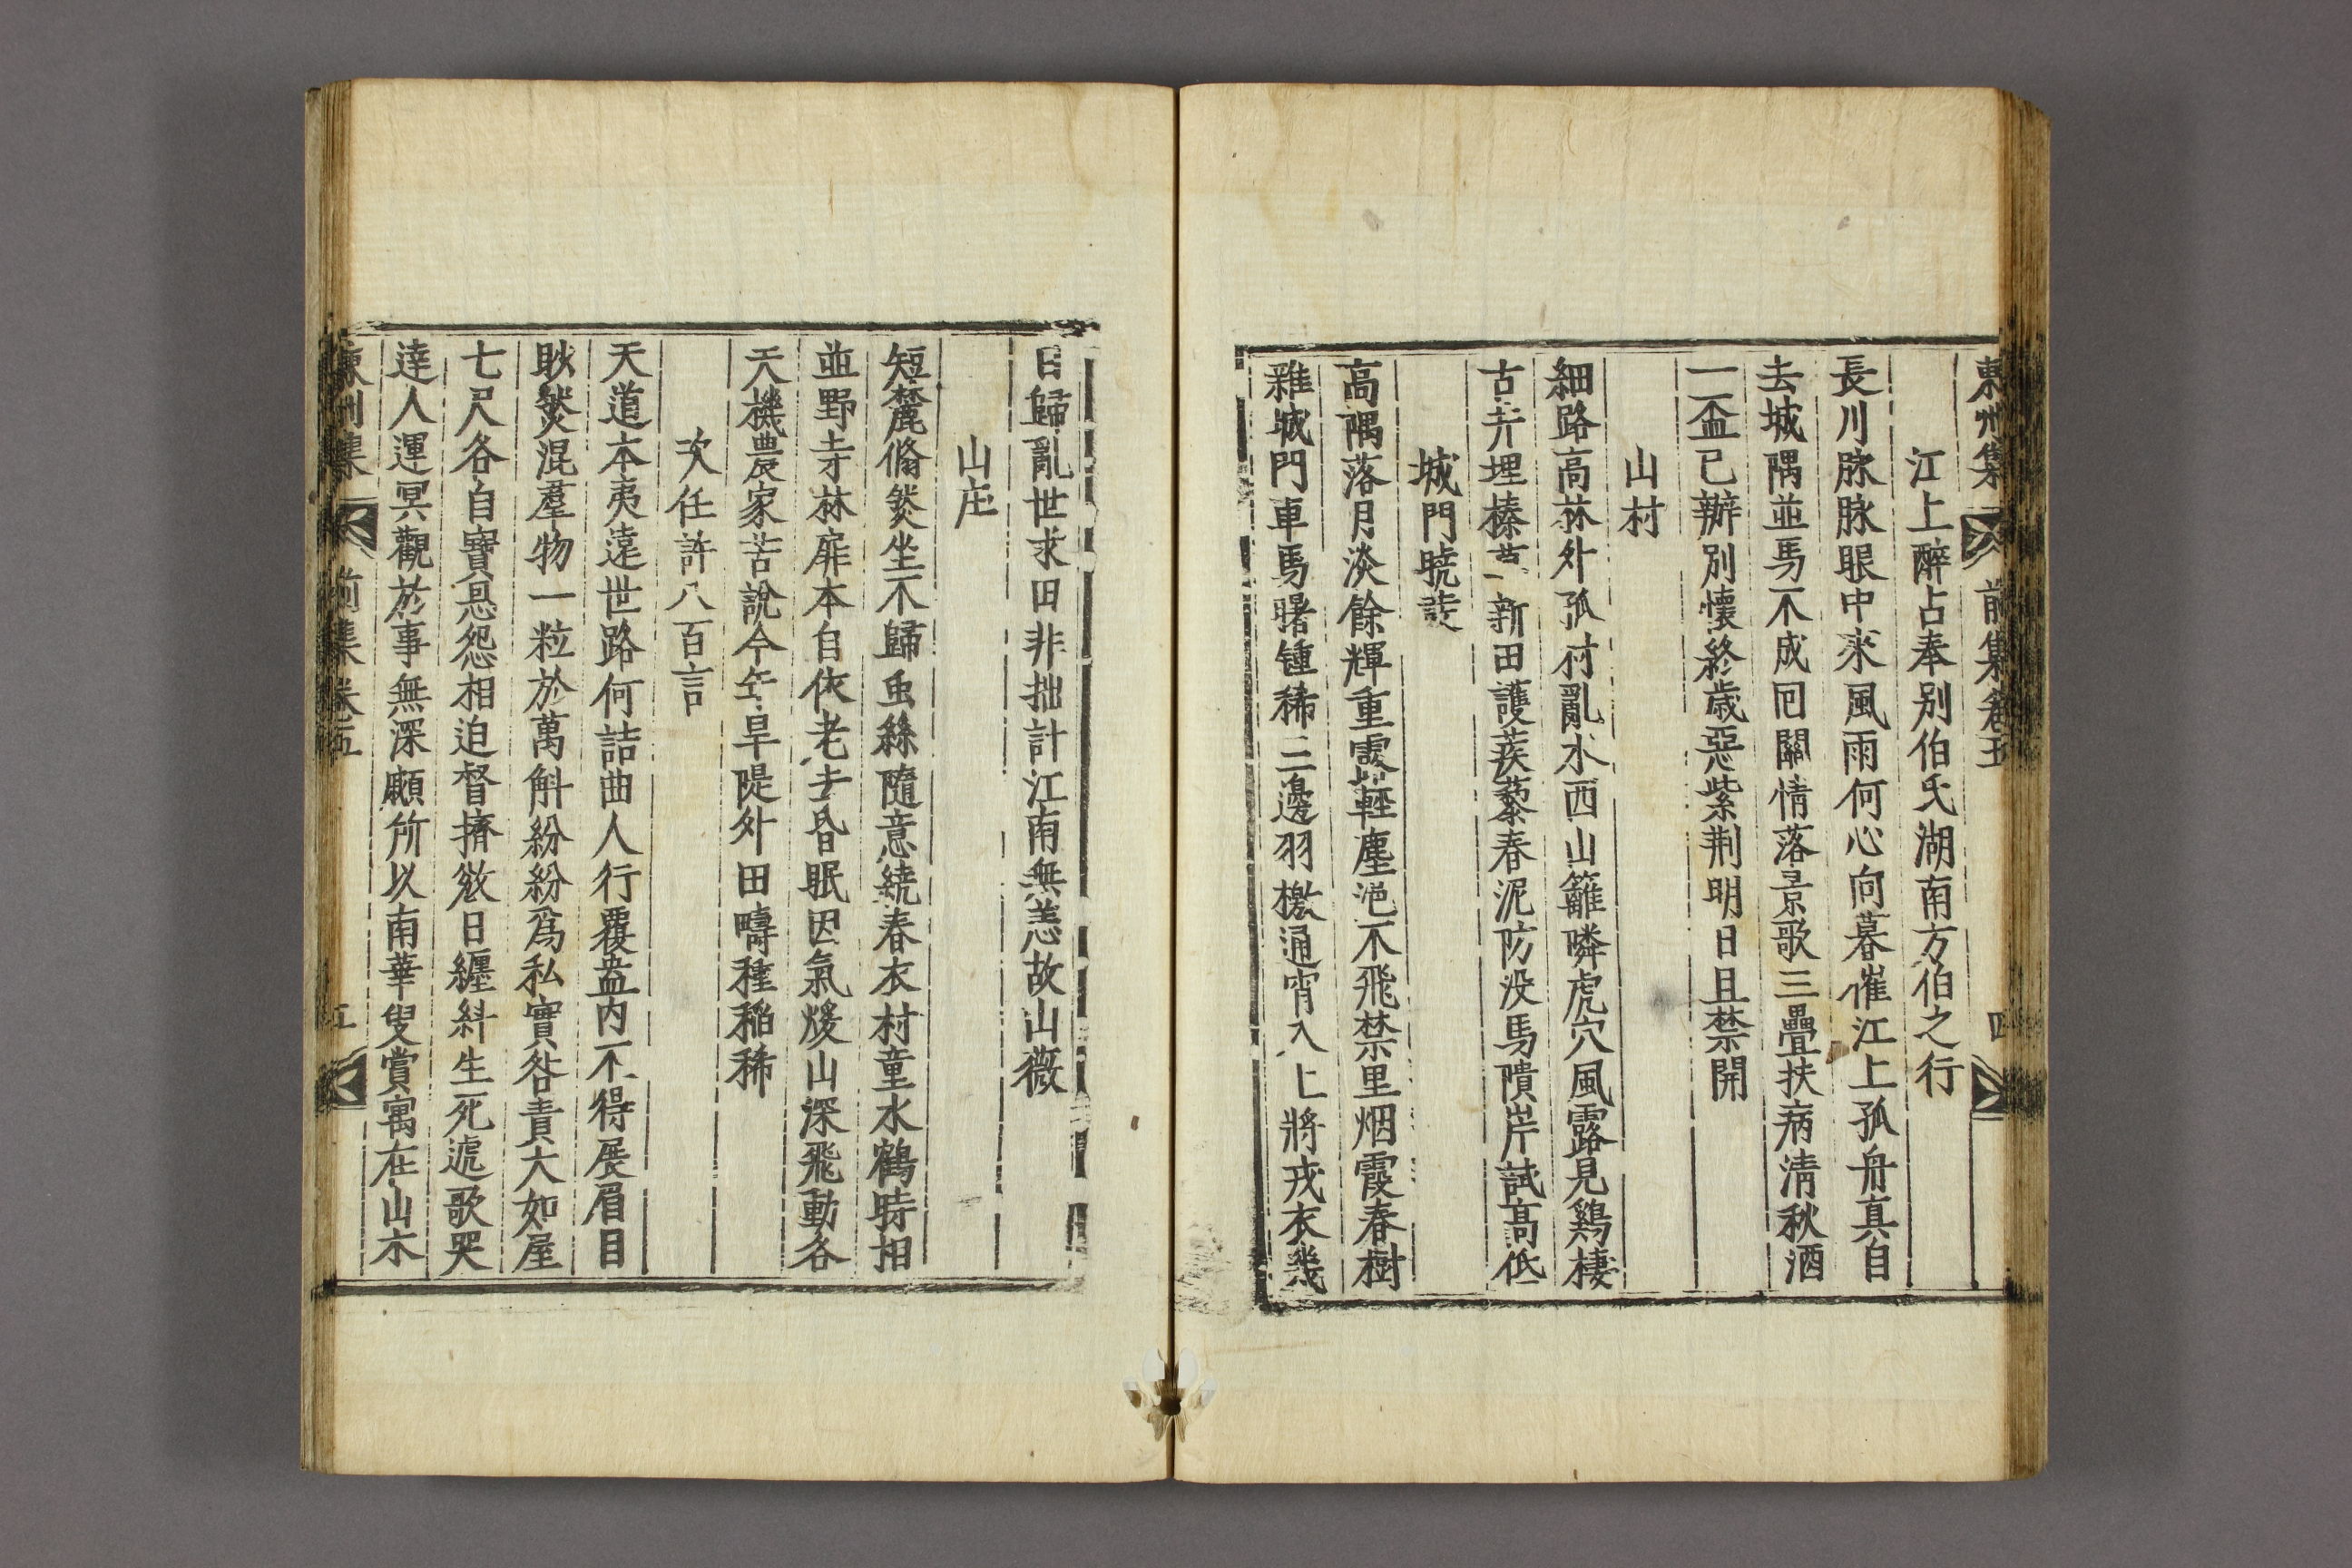 東州集 前集卷五 四
江上醉占奉別伯氏湖南方伯之行
長川脉脉眼中來風雨何心向暮催江上孤舟真自
去城隅並馬不成回關情落景歌三疊扶病淸秋酒
一盃已辦別懷終歲惡紫荆明日且禁開
山村
細路高林外孤村亂水西山籬隣虎穴風露見鷄棲
古井埋榛莽新田護蒺藜春泥防没馬隤岸試髙低
城門曉發
高隅落月淡餘輝重露輕塵浥不飛禁里烟霞春樹
雜城門車馬曙鍾稀三邊羽檄通宵入上將戎衣幾
日歸亂世求田非拙計江南無恙故山薇
山庄
短麓翛然坐不歸虫絲隨意繞春衣村童水鶴時相
並野寺林扉本自依老去昏眠因氣煖山深飛動各
天機農家苦說今年旱隄外田疇種稻稀
次任許八百言
天道本夷遠世路何詰曲人行覆盎内不得展眉目
眇然混羣物一粒於萬斛紛紛爲私實咎責大如屋
七尺各自寶恩怨相迫督擠慾日纒糾生死遞歌哭
達人運冥觀於事無深顧所以南華叟賞寓在山木
東州集 前集卷五 五